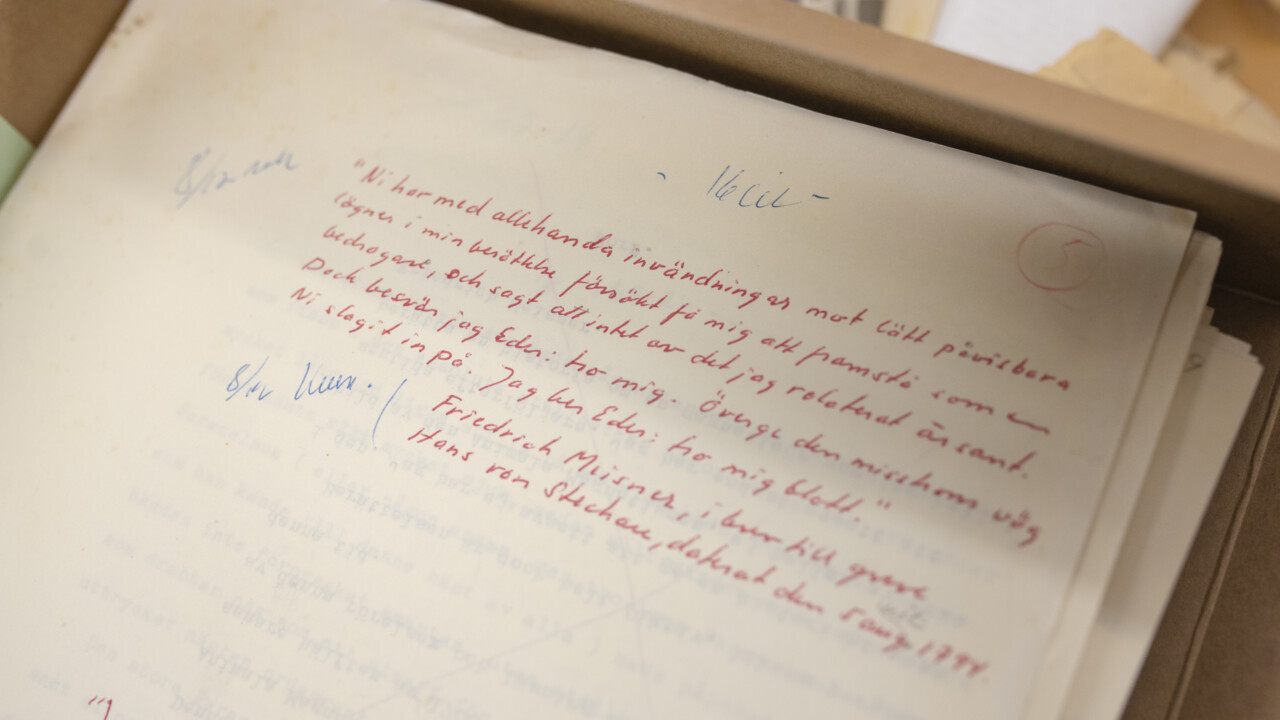 5
"Ni har med allehanda invändningar mot lätt påvisbara
lögner i min berättelse försökt få mig att framstå som en
bedragare, och sagt att intet av det jag relaterat är sant.
Dock besvär jag Eder: tro mig. Överge den misstrons väg
Ni slagit in på. Jag ber Eder: tro mig blott."
Friedrich Meisner, i brev till greve
Hans von Stechau, daterat den 5 aug 1794.